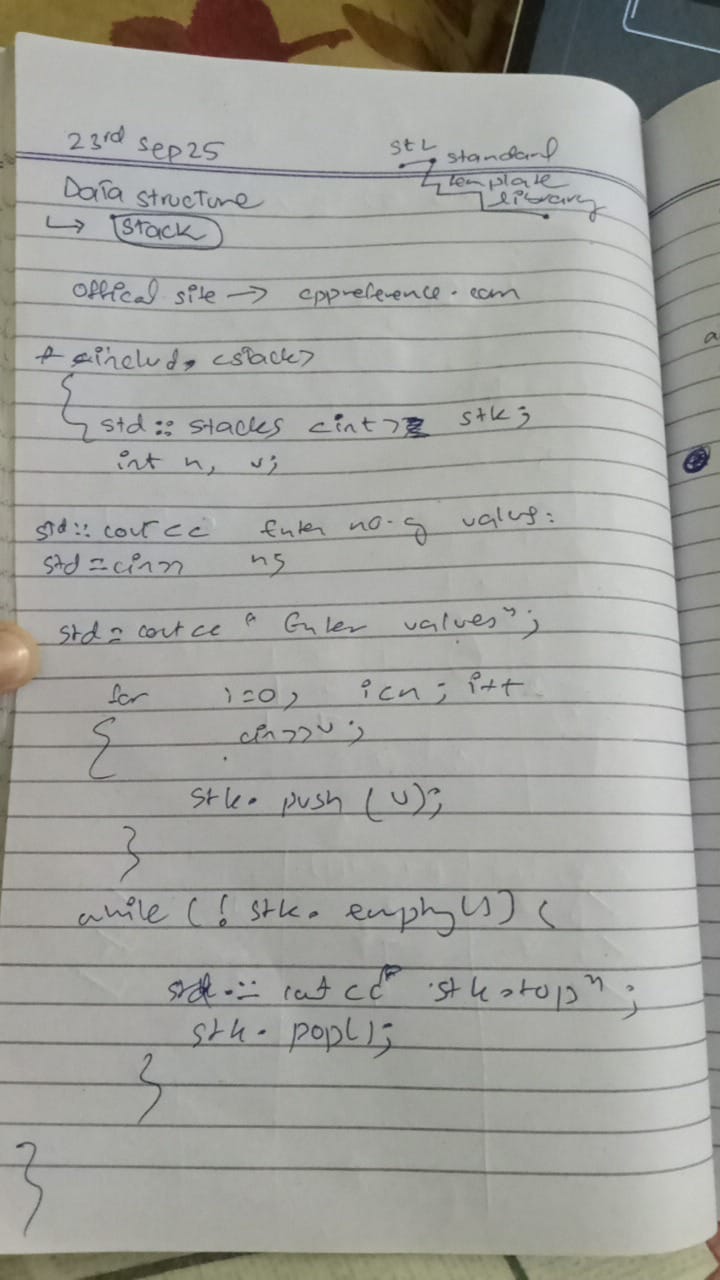 23rd Sep 25
STL standard
template
library
Data structure
↳ Stack
offical site → cppreference.com
# include <stack>
{
std :: stacks <int> stk;
int n, v;
std :: cout << Enter no. of values:
std :: cin >> n;
std :: cout << " Enter values";
for i=0, i<n; i++
{ cin>>v;
stk. push (v);
}
while (! stk. empty()) {
std :: cout << " stk.top";
stk. pop();
}
}